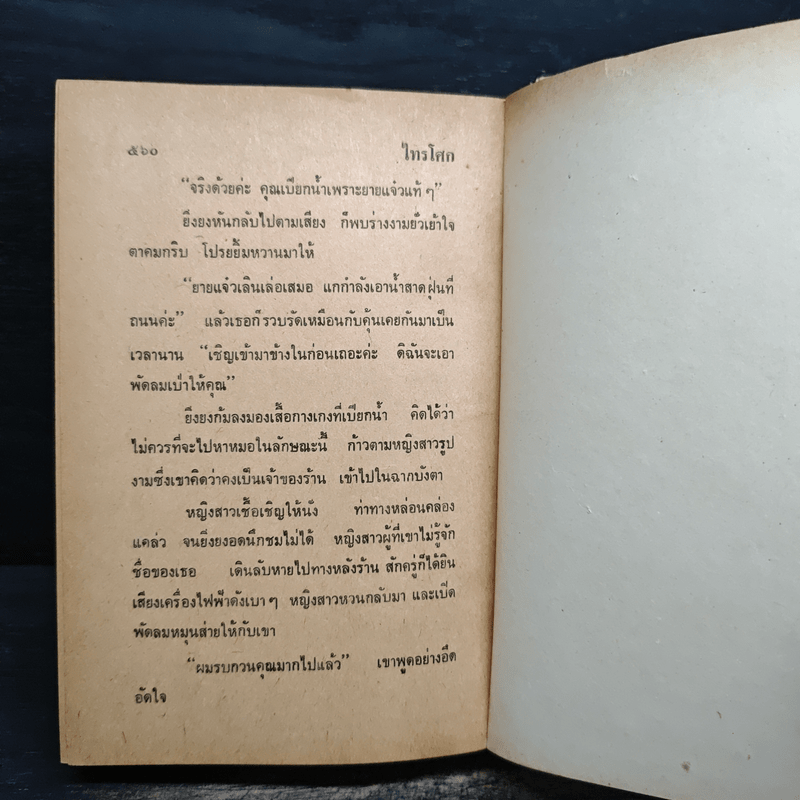 ๕๖๐ ไทรโศก
“จริงด้วยค่ะ คุณเปียกน้ำเพราะยายแจ๋วแท้ ๆ”
ยิ่งยงหันกลับไปตามเสียง ก็พบร่างงามยั่วเย้าใจ
ตาคมกริบ โปรยยิ้มหวานมาให้
“ยายแจ๋วเลินเล่อเสมอ แกกำลังเอาน้ำสาดฝุ่นที่
ถนนค่ะ” แล้วเธอก็รวบรัดเหมือนกับคุ้นเคยกันมาเป็น
เวลานาน “เชิญเข้ามาข้างในก่อนเถอะค่ะ ดิฉันจะเอา
พัดลมเป่าให้คุณ”
ยิ่งยงก้มลงมองเสื้อกางเกงที่เปียกน้ำ คิดได้ว่า
ไม่ควรที่จะไปหาหมอในลักษณะนี้ ก้าวตามหญิงสาวรูป
งามซึ่งเขาคิดว่าคงเป็นเจ้าของร้าน เข้าไปในฉากบังตา
หญิงสาวเชื้อเชิญให้นั่ง ท่าทางหล่อนคล่อง
แคล่ว จนยิ่งยงอดนึกชมไม่ได้ หญิงสาวผู้ที่เขาไม่รู้จัก
ชื่อของเธอ เดินลับหายไปทางหลังร้าน สักครู่ก็ได้ยิน
เสียงเครื่องไฟฟ้าดังเบา ๆ หญิงสาวหวนกลับมา และเปิด
พัดลมหมุนส่ายให้กับเขา
“ผมรบกวนคุณมากไปแล้ว” เขาพูดอย่างอึด
อัดใจ